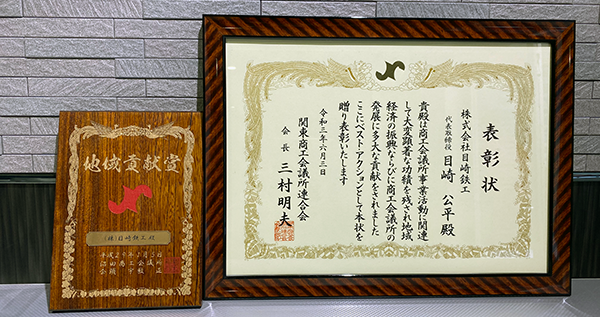 地域貢献賞
(株)目崎鉄工 殿
表彰状
株式会社目崎鉄工
代表取締役 目崎 公平殿
貴殿は商工会議所事業活動に関連
して大変顕著な功績を残され地域
経済の振興ならびに商工会議所の
発展に多大な貢献をされました
ここにベスト・アクションとして本状を
贈り表彰いたします
令和三年六月三日
関東商工会議所連合会
会長 三村明夫